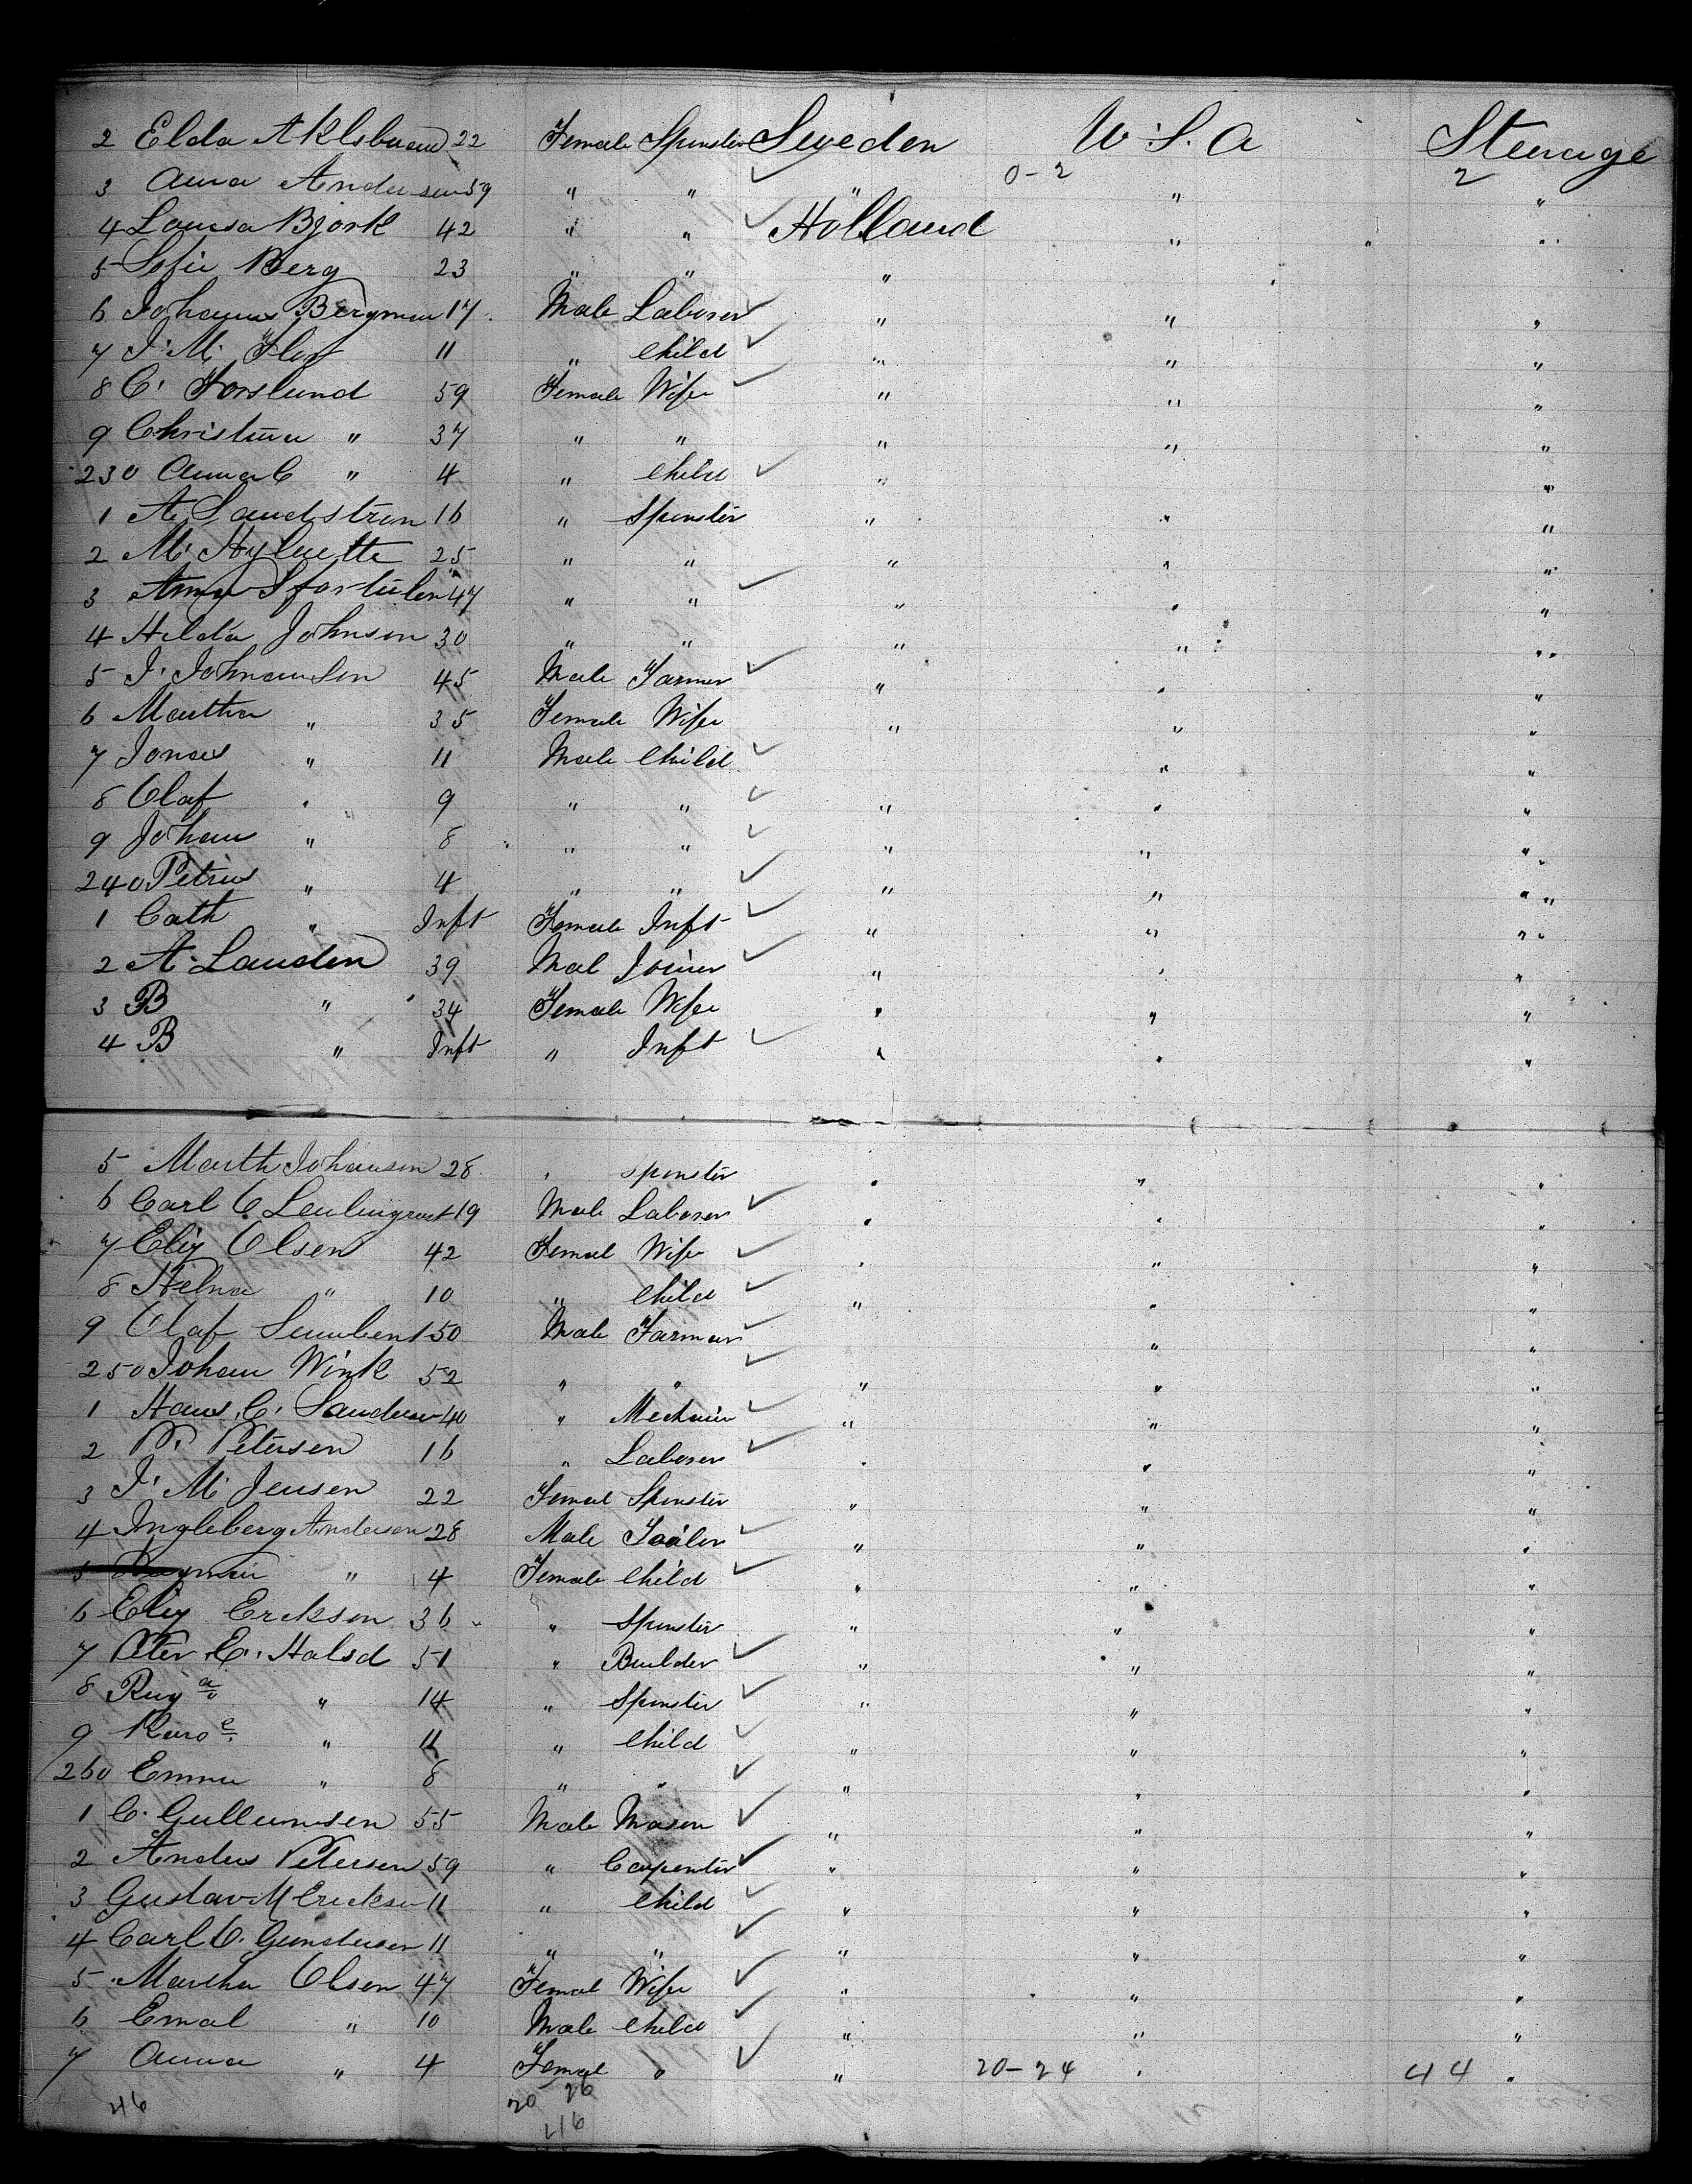 2 Elda 22 Female Spinster Sweden U.S.A Steerage
3 Anna Andersen 59 " " " 0-2 " 2 "
4 Lovisa Bjork 42 " " Holland " "
5 Sofie Berg 23 " " "
6 Johannes Bergman 17 Male Laborer " " "
7 J. M. 11 " Child " " "
8 C. Forslund 59 Female Wife " " "
9 Christina " 37 " " " " "
230 Anna C " 4 " Child " " "
1 A. Sandstrom 16 " Spinster " " "
2 M. 25 " " " " "
3 47 " " " " "
4 Hilda Johnson 30 " " " " "
5 J. Johansson 45 Male Farmer " " "
6 Martha " 35 Female Wife " " "
7 Jonas " 11 Male Child " "
8 Olaf " 9 " " " " "
9 Johan " 8 " " " " "
240 Petrus " 4 " " " " "
1 Cath " Inft Female Inft " " "
2 A. Lauden 39 Mal Joiner " " "
3 B " 34 Female Wife " " "
4 B " Inft " Inft " " "
5 Marth Johansen 28 " Spinster " " "
6 Carl C 19 Male Laborer " " "
7 Eliz Olsen 42 Femal Wife " " "
8 Helna " 10 " Child " " "
9 Olaf 50 Male Farmer " "
250 Johan Wink 52 " " " " "
1 Hans C. 40 " Mechanic " " "
2 P. Petersen 16 " Laborer " " "
3 J. M. Jensen 22 Femal Spinster " " "
4 Ingleberg Andersen 28 Male " " "
5 " 4 Female Child " " "
6 Eliz Erickson 36 " Spinster " " "
7 Peter C. Halsd 51 " Builder " " "
8 " 14 " Spinster " " "
9 " 11 " Child " " "
260 Emma " 8 " " " " "
1 C. Gullumsen 55 Male Mason " " "
2 Anders Petersen 59 " Carpenter " " "
3 Gustav M Erickson 11 " Child " " "
4 Carl C. 11 " " " " "
5 Martha Olsen 47 Femal Wife " " "
6 Emal " 10 Male Child " " "
7 Anna " 4 Femal " " 20-24 " 44 "
46 20 26
46